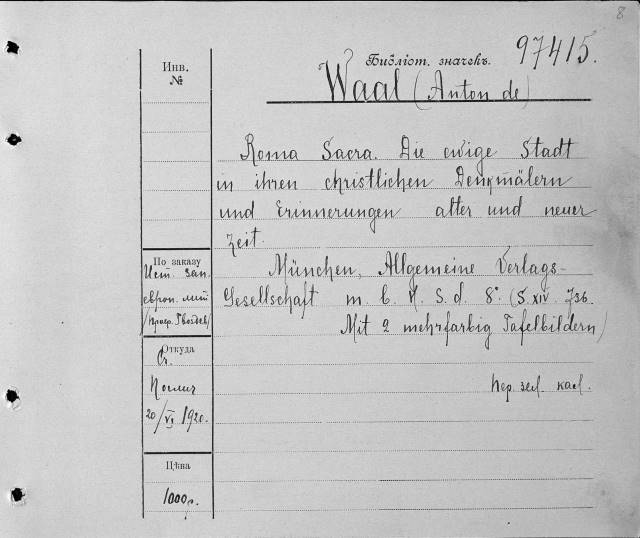 8
Библіот. значекъ.
97415.
Инв.
№
Waal (Anton de)
Roma Sacra. Die ewige Stadt
in ihren christlichen Denkmälern
und Erinnerungen alter und neuer
Zeit.
По заказу
Ист. зап.
европ. лит.
München, Allgemeine Verlags-
Gesellschaft m. b. H. S. d. 8° (S. XIV. 736.
Mit 2 mehrfarbig Tafelbildern)
Откуда
20/VI 1920.
Пер. зел. кал.
Цѣна
1000 р.